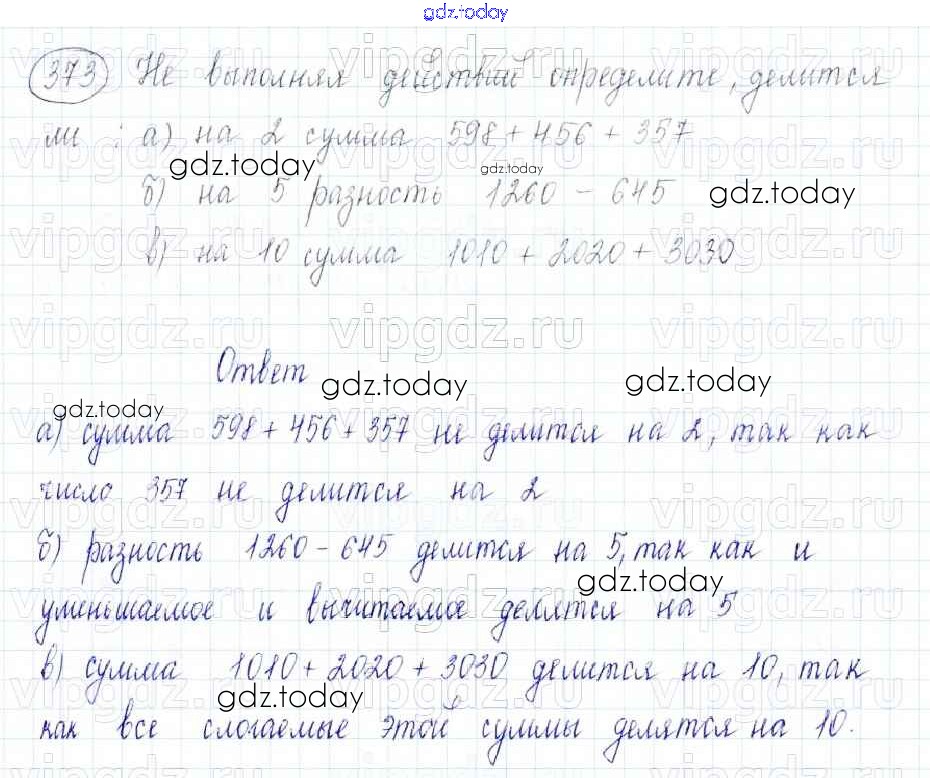 gdz.today
373 Не выполняя действий определите, делится
ли : а) на 2 сумма 598 + 456 + 357
gdz.today gdz.today
б) на 5 разность 1260 - 645 gdz.today
в) на 10 сумма 1010 + 2020 + 3030
vipgdz.ru vipgdz.ru vipgdz.ru
Ответ
gdz.today gdz.today
gdz.today
а) сумма 598 + 456 + 357 не делится на 2, так как
число 357 не делится на 2
б) разность 1260 - 645 делится на 5, так как и
gdz.today
уменьшаемое и вычитаемое делятся на 5
в) сумма 1010 + 2020 + 3030 делится на 10, так
gdz.today
как все слогаемые этой суммы делятся на 10.